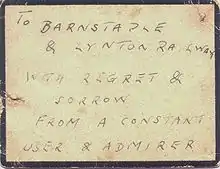 TO BARNSTAPLE
& LYNTON RAILWAY
WITH REGRET &
SORROW
FROM A CONSTANT
USER & ADMIRER